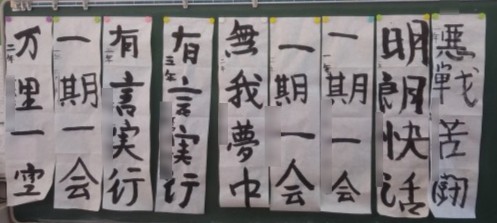 悪戦苦闘
明朗快活
一期一会
一期一会
無我夢中
有言実行
三年
有言実行
一期一会
万里一空
二年